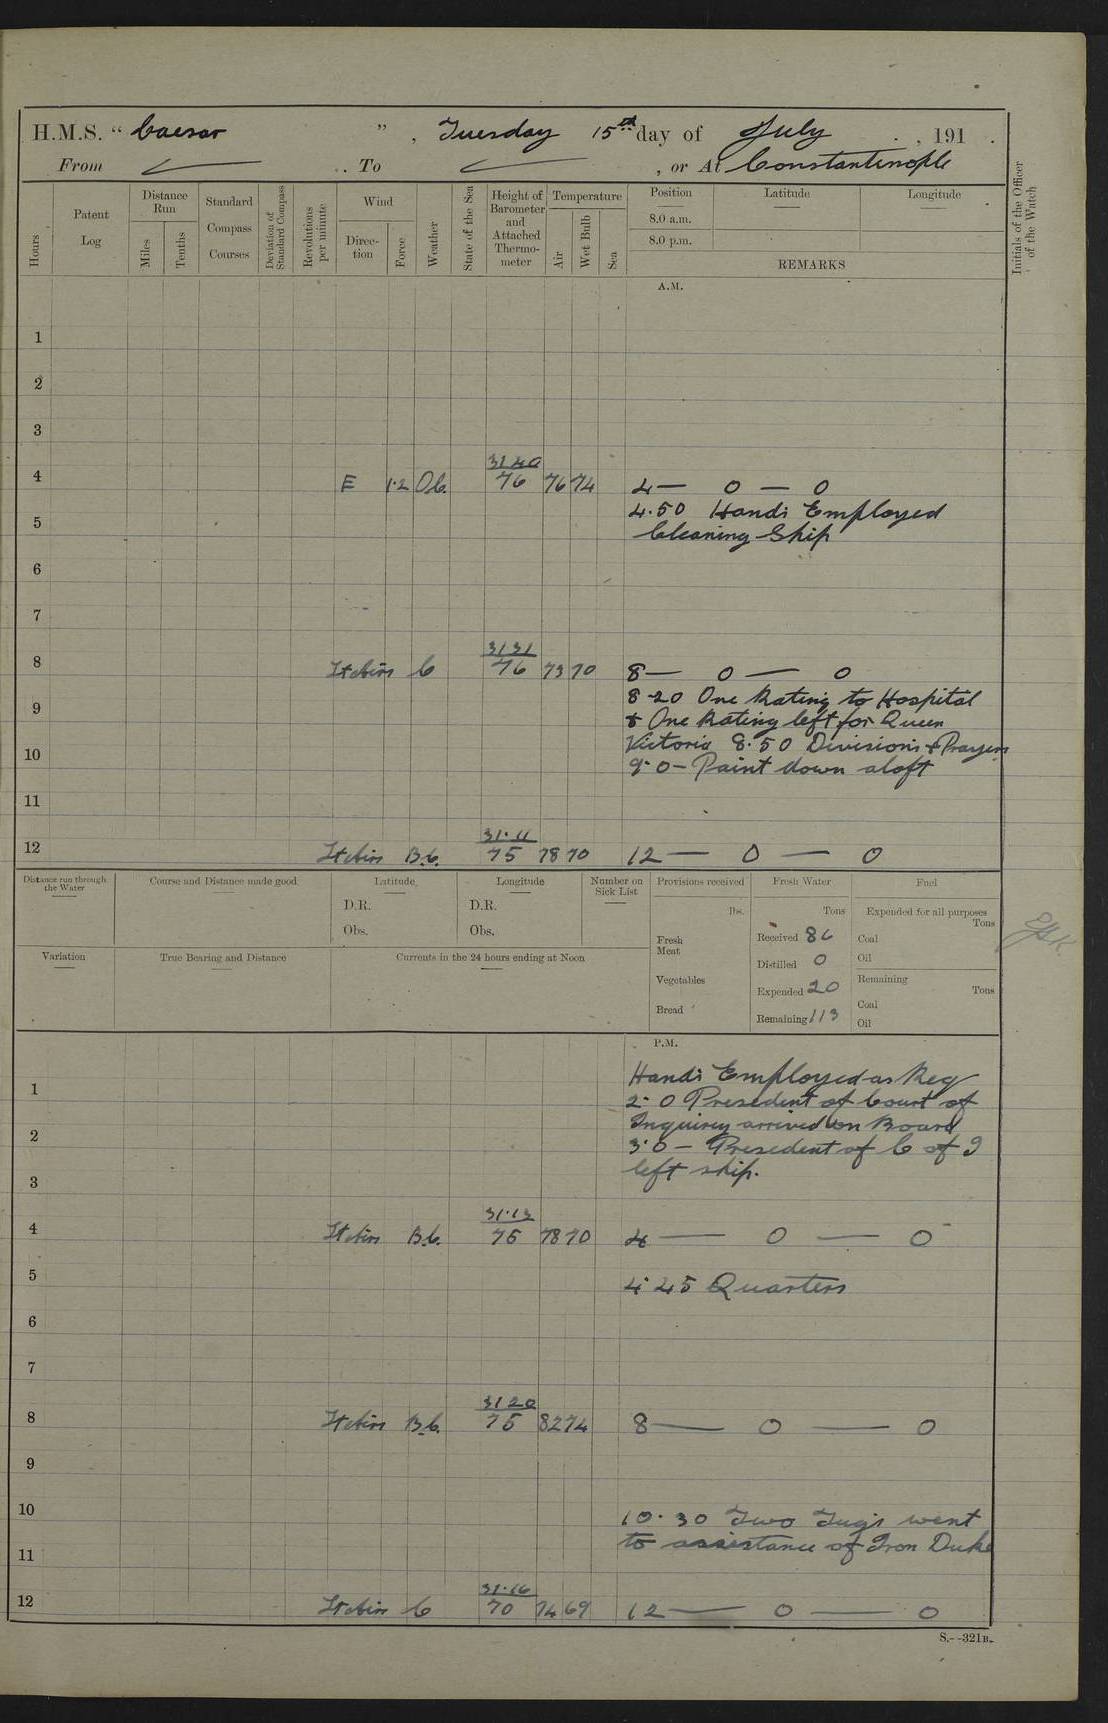 H.M.S. “ Caesar ” , Tuesday 15th day of July , 191 .
From To , or At Constantinople
Hours
Patent Log
Distance Run
Miles
Tenths
Standard Compass Courses
Deviation of Standard Compass
Revolutions per minute
Wind
Direction
Force
Weather
State of the Sea
Height of Barometer and Attached Thermometer
Temperature
Air
Wet Bulb
Sea
Position
Latitude
Longitude
8.0 a.m.
8.0 p.m.
REMARKS
Initials of the Officer of the Watch
A.M.
1
2
3
31 40
4 E 1·2 O.C. 76 76 74 4 — 0 — 0
4.50 Hands Employed
5
Cleaning Ship
6
7
31 31
8 Lt Airs C 76 73 70 8 — 0 — 0
8-20 One Rating to Hospital
9
& One Rating left for Queen
Victoria 8.50 Divisions & Prayers
10
9.0 - Paint down aloft
11
31.11
12 Lt Airs B.C. 75 78 70 12 — 0 — 0
Distance run through the Water
Course and Distance made good
Latitude
D.R.
Obs.
Longitude
D.R.
Obs.
Number on Sick List
Provisions received
lbs.
Fresh Meat
Vegetables
Bread
Fresh Water
Tons
Received 86
Distilled 0
Expended 20
Remaining 113
Fuel
Expended for all purposes
Tons
Coal
Oil
Remaining
Tons
Coal
Oil
Variation
True Bearing and Distance
Currents in the 24 hours ending at Noon
P.M.
Hands Employed as Req
1
2.0 President of Court of
Inquirey arrived on Board
2
3.0 - President of C of I
left ship.
3
31.13
4 Lt Airs B.C. 75 78 70 4 — 0 — 0
5
4.45 Quarters
6
7
31 20
8 Lt Airs B.C. 75 82 74 8 — 0 — 0
9
10
10.30 Two Tugs went
to assistance of Iron Duke
11
31.16
12 Lt Airs C 70 74 69 12 — 0 — 0
S.—321B.